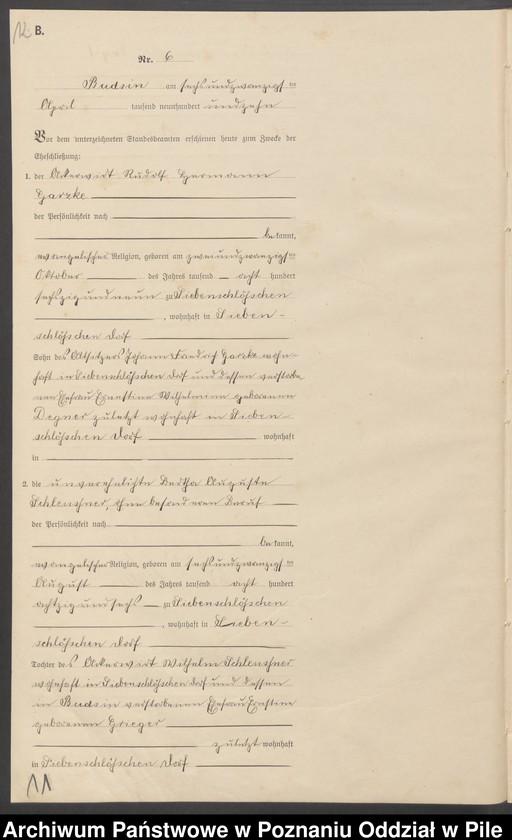 12 B.
Nr. 6
Budsin am sechsundzwanzigsten
April tausend neunhundert undzehn
Vor dem unterzeichneten Standesbeamten erschienen heute zum Zwecke der
Eheschließung:
1. der Ackerwirt Rudolf Hermann
Garzke
der Persönlichkeit nach
bekannt,
evangelischer Religion, geboren am zweiundzwanzigsten
Oktober des Jahres tausend acht hundert
sechszigundneun zu Siebenschlößchen
, wohnhaft in Sieben-
schlößchen Dorf
Sohn des Altsitzers Johann Friedrich Garzke wohn-
haft in Siebenschlößchen Dorf und dessen verstorbe-
nen Ehefrau Ernestine Wilhelmine geborenen
Degner zuletzt wohnhaft in Sieben-
schlößchen Dorf wohnhaft
in
2. die unverehelichte Bertha Auguste
Schlenßner, ohne besonderen Beruf
der Persönlichkeit nach
bekannt,
evangelischer Religion, geboren am sechsundzwanzigsten
August des Jahres tausend acht hundert
achtzigundsechs zu Siebenschlößchen
, wohnhaft in Sieben-
schlößchen Dorf
Tochter des Ackerwirt Wilhelm Schlenßner
wohnhaft in Siebenschlößchen Dorf und dessen
in Budsin verstorbenen Ehefrau Ernstine
geborenen Grieger
zuletzt wohnhaft
in Siebenschlößchen Dorf
11
Archiwum Państwowe w Poznaniu Oddział w Pile